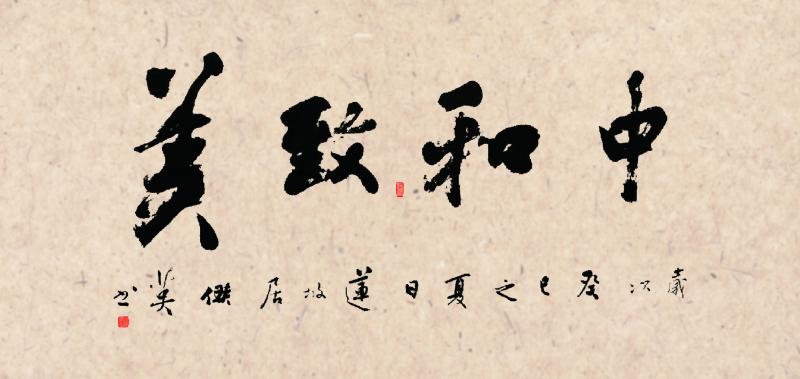 中和致美
歲次癸巳之夏日蓮故居傑英书